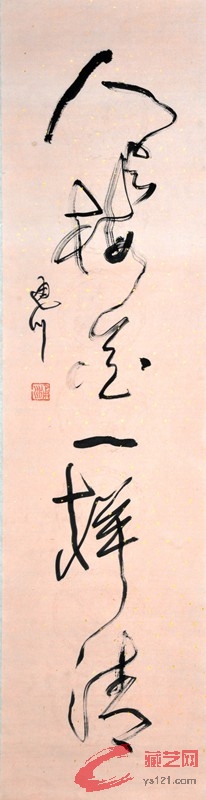 人与梅花一样清
藏艺网
ys121.com